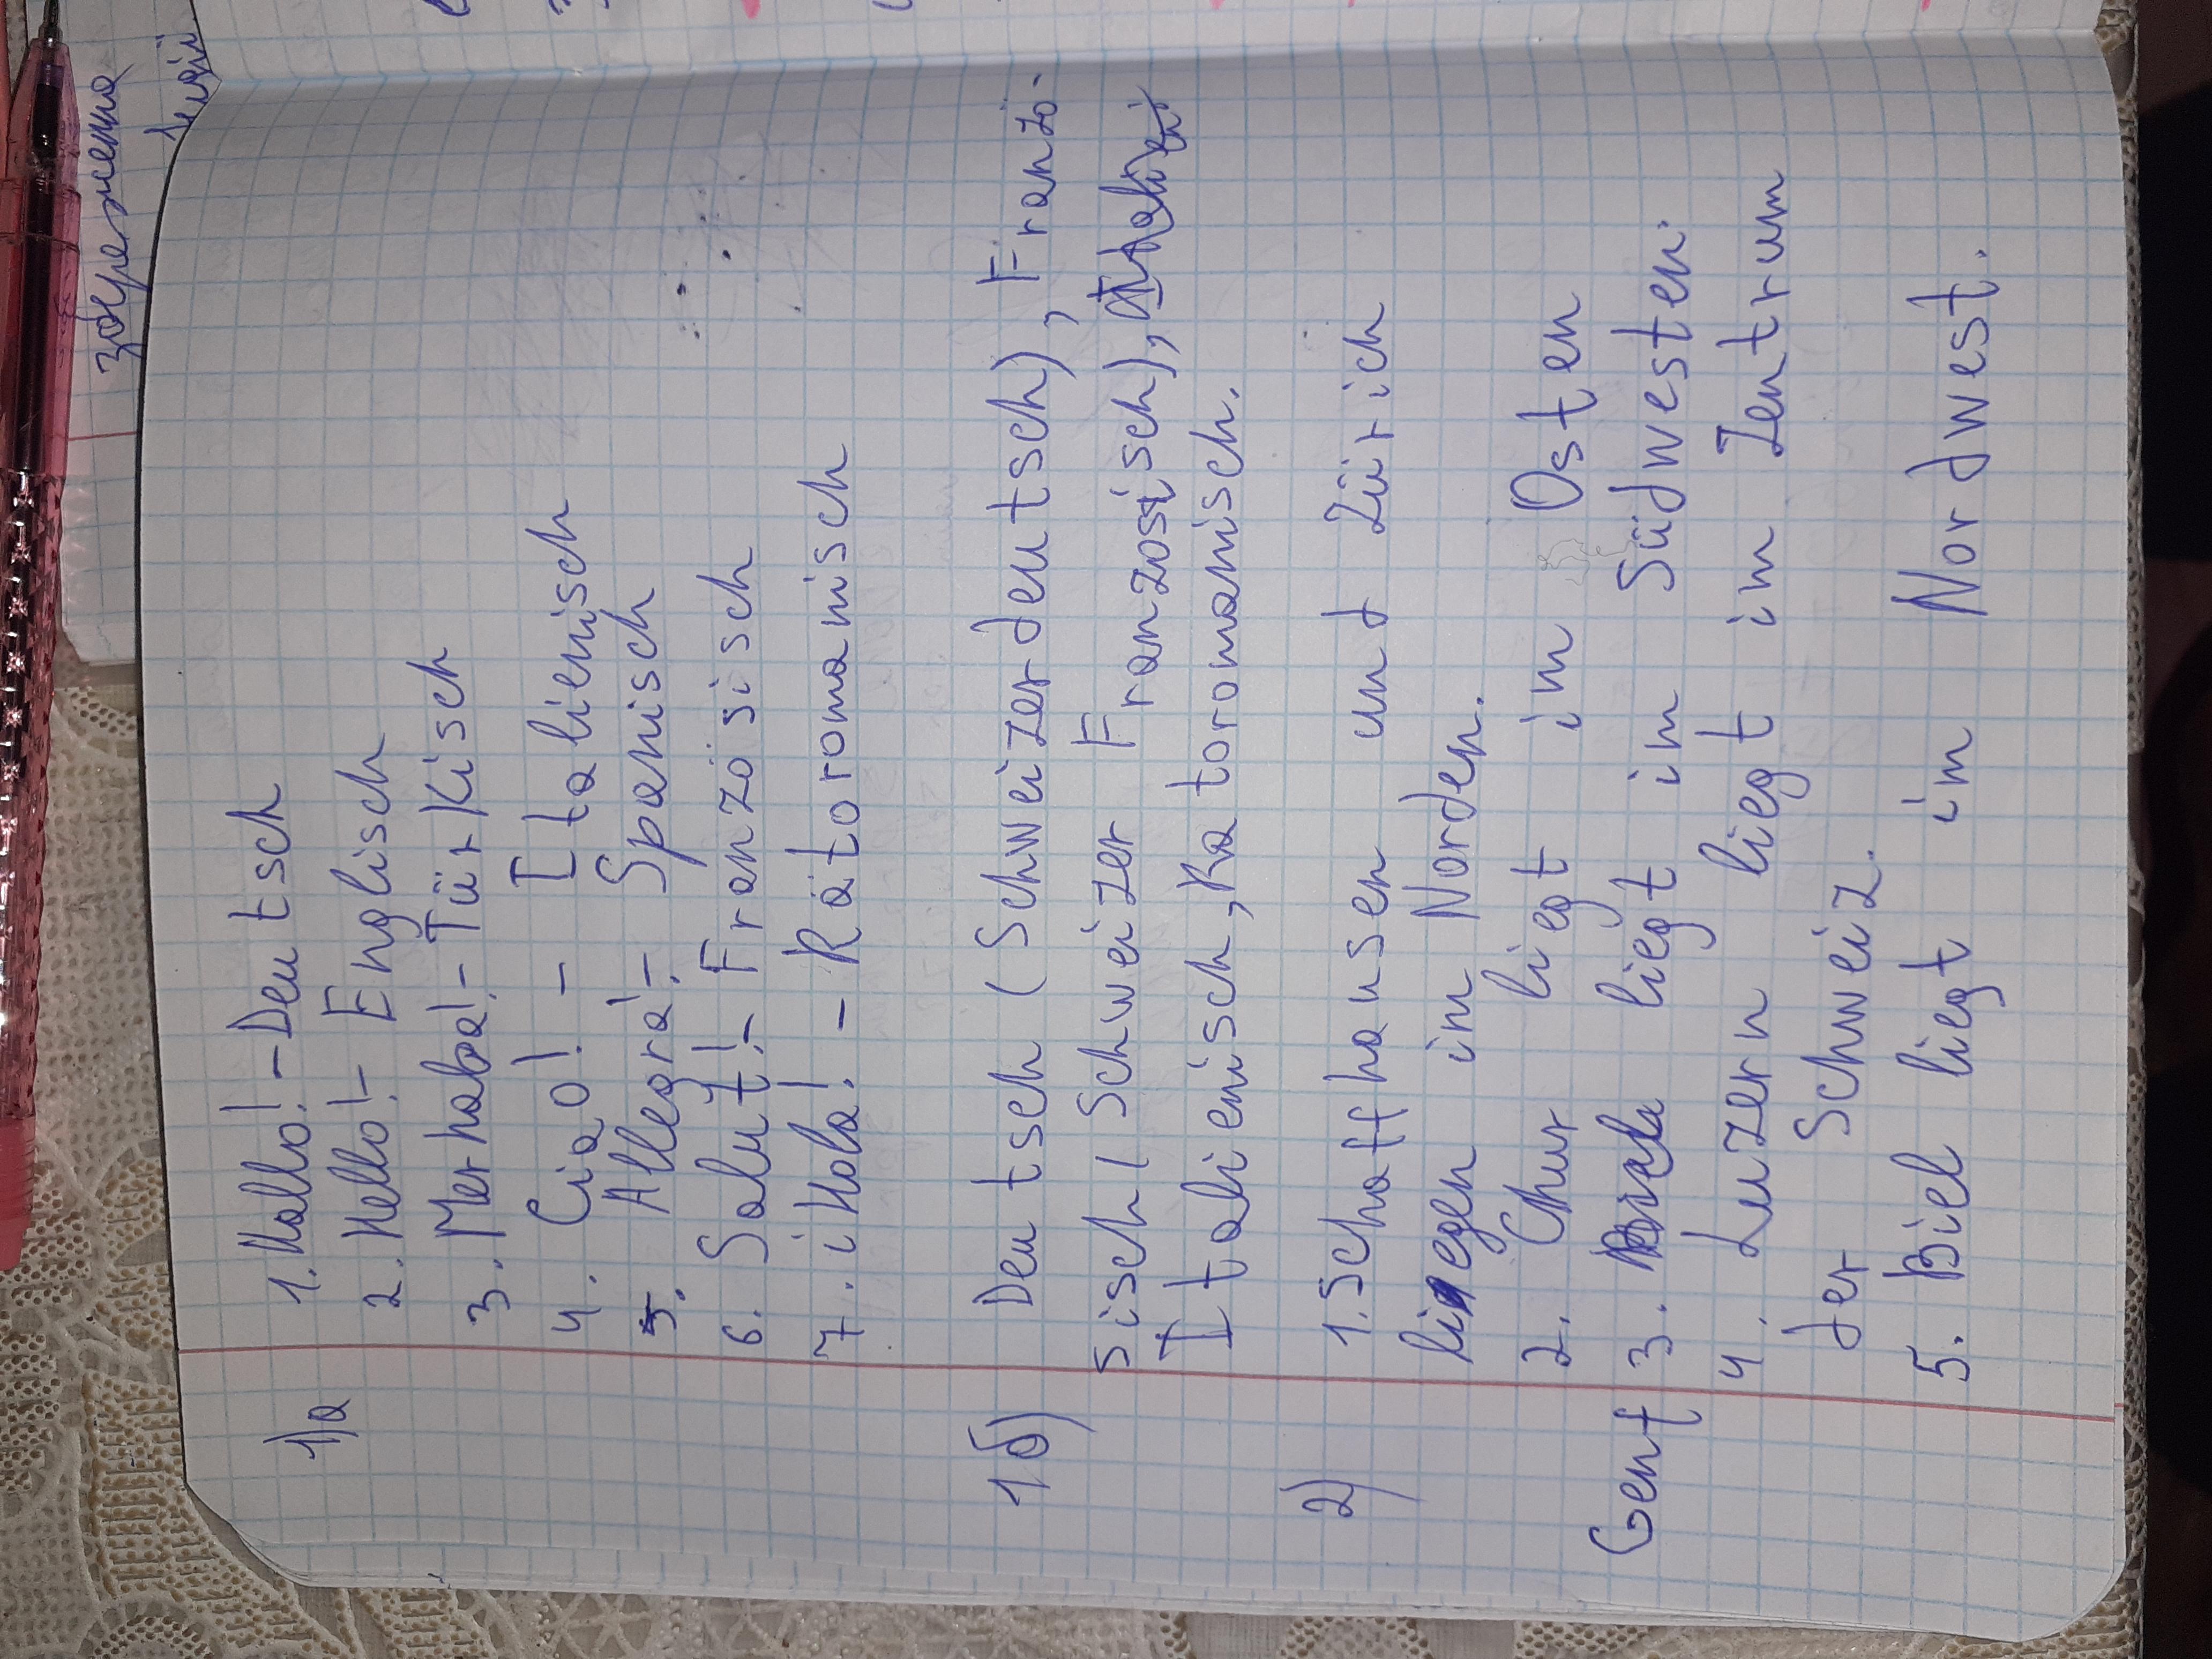 збережена
1)а 1. Hallo! – Deutsch
2. Hello! – Englisch
3. Merhaba! – Türkisch
4. Ciao! – Italienisch
5. Allegra! – Spanisch
6. Salut! – Franzosisch
7. ¡Hola! – Rätoromanisch
1б) Deutsch (Schweizerdeutsch), Franzö-
sisch (Schweizer Franzosisch),
Italienisch, Ratoromanisch.
2) 1. Schaffhausen und Zürich
liegen im Norden.
2. Chur liegt im Osten
Genf 3. liegt im Südwesten.
4. Luzern liegt im Zentrum
der Schweiz.
5. Biel liegt im Nordwest.